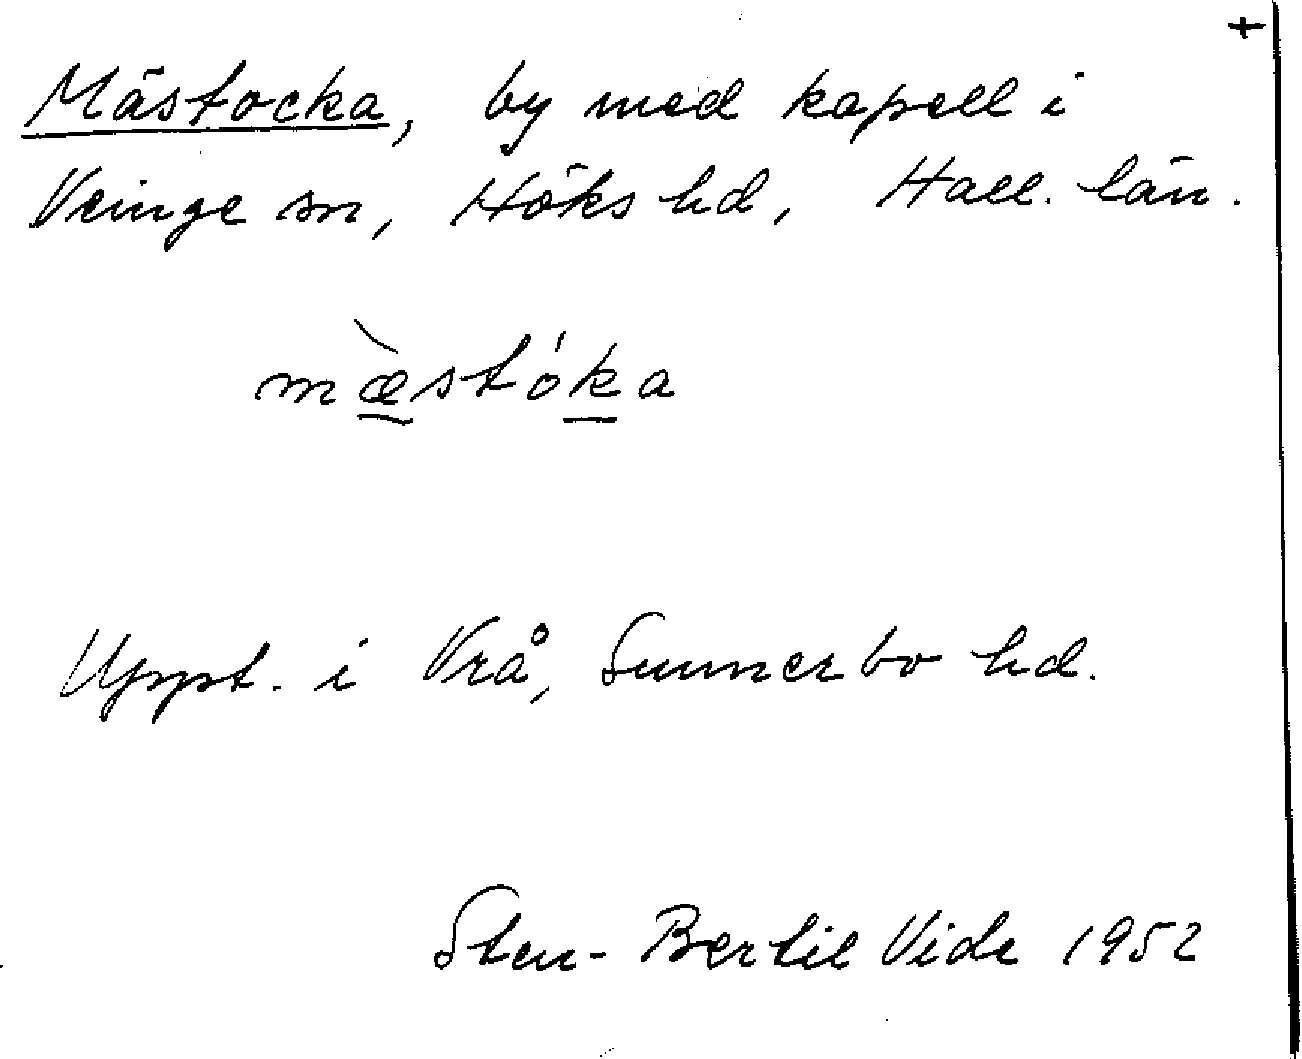 +
Mästocka, by med kapell i
Veinge sn, Höks hd, Hall. län.
mæ̀stóka
Uppt. i Vrå, Sunnerbo hd.
Sten-Bertil Vide 1952